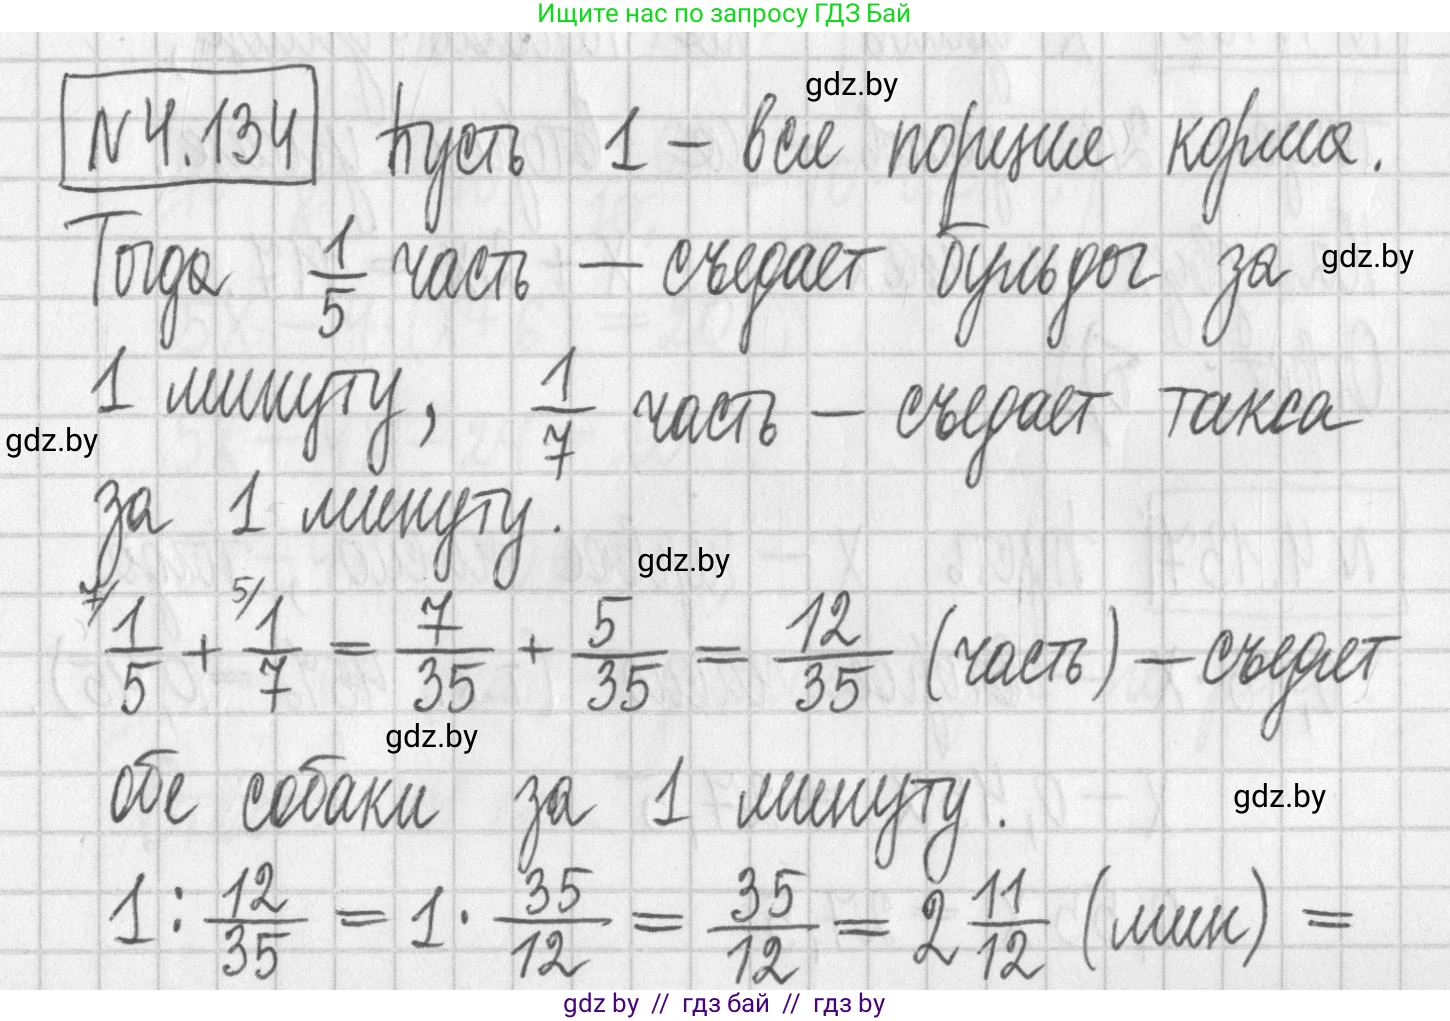 Ищите нас по запросу ГДЗ Бай
gdz.by
N 4.134 Пусть 1 – вся порция корма.
Тогда 1/5 часть – съедает бульдог за
gdz.by
1 минуту, 1/7 часть – съедает такса
gdz.by
за 1 минуту.
gdz.by
7/ 1/5 + 5/ 1/7 = 7/35 + 5/35 = 12/35 (часть) – съедят
gdz.by
обе собаки за 1 минуту.
gdz.by
1 : 12/35 = 1 · 35/12 = 35/12 = 2 11/12 (мин) =
gdz by // гдз бай // гдз by